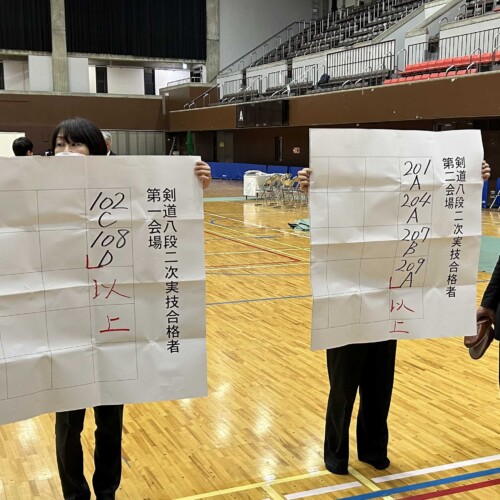 剣道八段二次実技合格者
第一会場
102
C
108
D
以上
剣道八段二次実技合格者
第二会場
201
A
204
A
207
B
209
A
以上
A